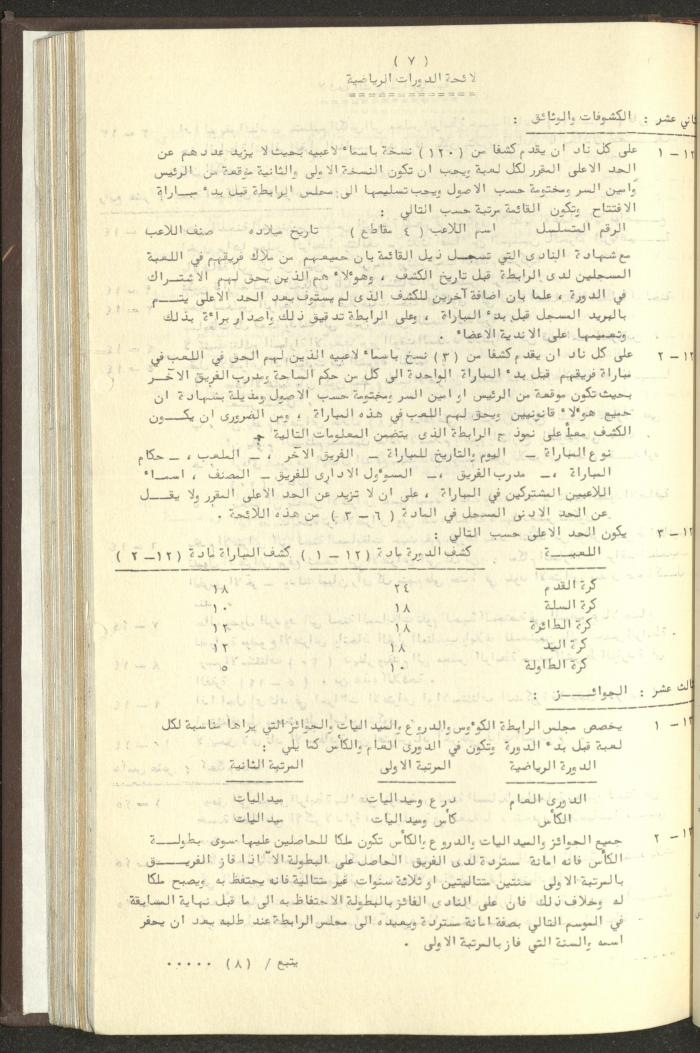 ( ٧ )
لائحة الدورات الرياضية
ثاني عشر : الكشوفات والوثائق :
١٢ – ١ على كل ناد ان يقدم كشفا من (١٢٠) نسخة باسماء لاعبيه بحيث لا يزيد عددهم عن
الحد الاعلى المقرر لكل لعبة ويجب ان تكون النسخة الاولى والثانية موقعة من الرئيس
وأمين السر ومختومة حسب الاصول ويجب تسليمها الى مجلس الرابطة قبل بدء مباراة
الافتتاح وتكون القائمة مرتبة حسب التالي :
الرقم المتسلسل اسم اللاعب ( ٤ مقاطع ) تاريخ ميلاده صنف اللاعب
مع شهادة النادى التي تسجل ذيل القائمة بان جميعهم من ملاك فريقهم في اللعبة
المسجلين لدى الرابطة قبل تاريخ الكشف ، وهؤلاء هم الذين يحق لهم الاشتراك
في الدورة ، علما بان اضافة آخرين للكشف الذى لم يستوف بعد الحد الاعلى يتم
بالبريد المسجل قبل بدء المباراة ، وعلى الرابطة تدقيق ذلك واصدار براءة بذلك
وتعميمها على الاندية الاعضاء .
١٢ – ٢ على كل ناد ان يقدم كشفا من (٣) نسخ باسماء لاعبيه الذين لهم الحق في اللعب في
مباراة فريقهم قبل بدء المباراة الواحدة الى كل من حكم الساحة ومدرب الفريق الآخر
بحيث تكون موقعة من الرئيس او امين السر ومختومة حسب الاصول ومذيلة بشهادة ان
جميع هؤلاء قانونيين ويحق لهم اللعب في هذه المباراة ، ومن الضرورى ان يكون
الكشف معبأ على نموذج الرابطة الذى يتضمن المعلومات التالية :
نوع المباراة – اليوم والتاريخ للمباراة – الفريق الآخر ، – الملعب ، – حكام
المباراة ، – مدرب الفريق ، – المسؤول الادارى للفريق – المصنف ، اسماء
اللاعبين المشتركين في المباراة ، على ان لا تزيد عن الحد الاعلى المقرر ولا يقل
عن الحد الادنى المسجل في المادة ( ٦ – ٣ ) من هذه اللائحة .
١٢ – ٣ يكون الحد الاعلى حسب التالي :
اللعبة كشف الدورة مادة (١٢ – ١ ) كشف المباراة مادة (١٢ – ٢ )
كرة القدم ٢٤ ١٨
كرة السلة ١٨ ١٠
كرة الطائرة ١٨ ١٢
كرة اليد ١٨ ١٢
كرة الطاولة ١٠ ٥
ثالث عشر : الجوائز :
١٣ – ١ يخصص مجلس الرابطة الكؤوس والدروع والميداليات والجوائز التي يراها مناسبة لكل
لعبة قبل بدء الدورة وتكون في الدورى العام والكأس كما يلي :
الدورة الرياضية المرتبة الاولى المرتبة الثانية
الدورى العام درع وميداليات ميداليات
الكأس كأس وميداليات ميداليات
١٣ – ٢ جميع الجوائز والميداليات والدروع والكأس تكون ملكا للحاصلين عليها سوى بطولة
الكأس فانه امانة مستردة لدى الفريق الحاصل على البطولة الا اذا فاز الفريق
بالمرتبة الاولى سنتين متتاليتين او ثلاثة سنوات غير متتالية فانه يحتفظ به ويصبح ملكا
له وخلاف ذلك فان على النادى الفائز بالبطولة الاحتفاظ به الى ما قبل نهاية المسابقة
في الموسم التالي بصفة امانة مستردة ويعيده الى مجلس الرابطة عند طلبه بعد ان يحفر
اسمه والسنة التي فاز بالمرتبة الاولى .
يتبع / (٨) ٠٠٠٠٠